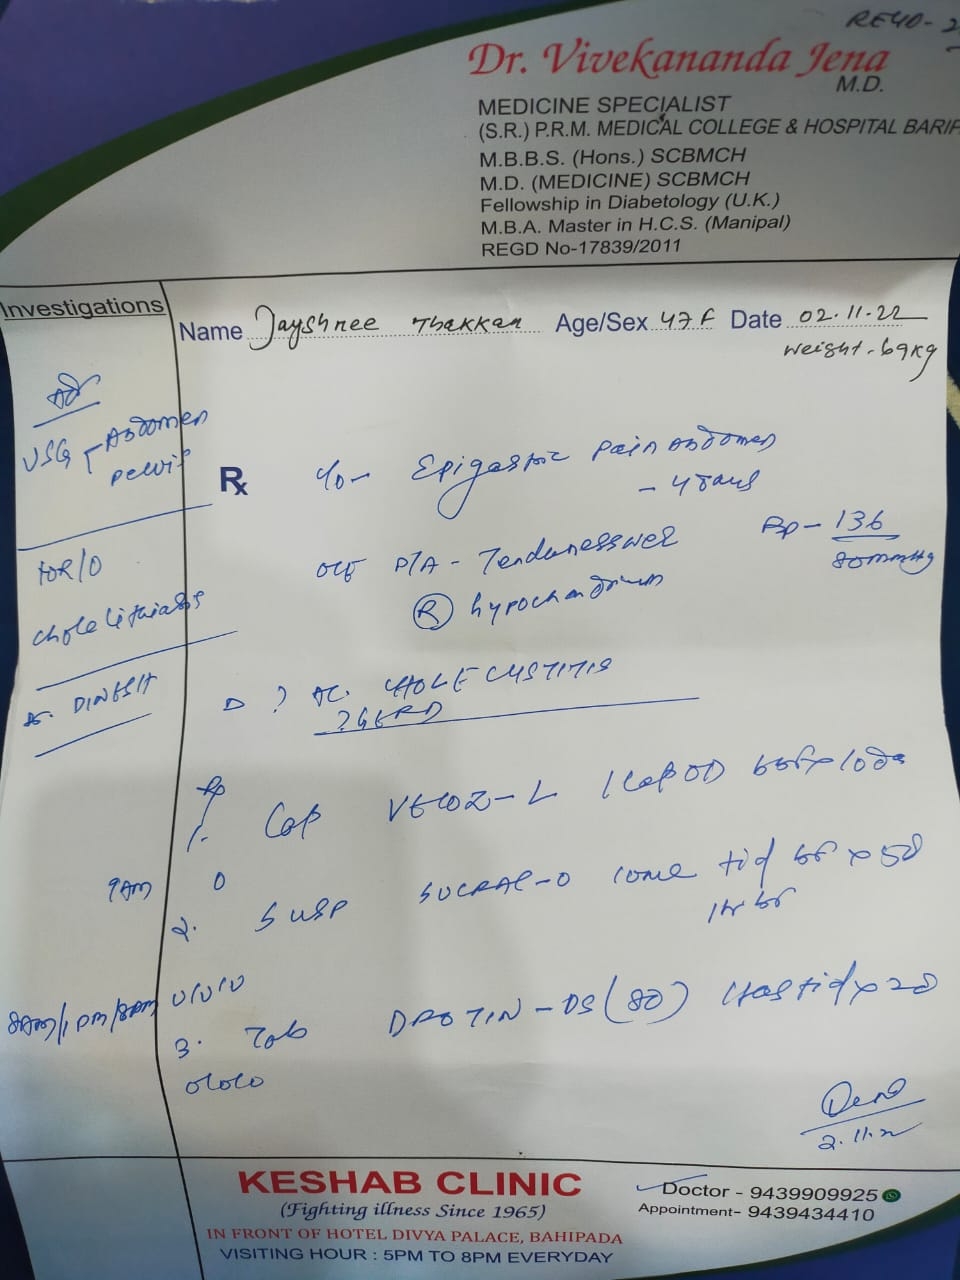 REYO-2
Dr. Vivekananda Jena
M.D.
MEDICINE SPECIALIST
(S.R.) P.R.M. MEDICAL COLLEGE & HOSPITAL BARIP
M.B.B.S. (Hons.) SCBMCH
M.D. (MEDICINE) SCBMCH
Fellowship in Diabetology (U.K.)
M.B.A. Master in H.C.S. (Manipal)
REGD No-17839/2011
Investigations
Name Jayshree Thakkar Age/Sex 47 F Date 02.11.22
Weight - 69 kg
USG Abdomen
pelvis
Rx C/o - Epigastric pain abdomen
- 4 days
O/E P/A - Tenderness
(R) hypochondrium
BP - 136
80 mmHg
R/O
Cholelithiasis
DINESH
D ? AC. CHOLECYSTITIS
? GERD
1. Cap VELOZ-L 1 cap OD bbf x 10d
9AM 0
2. Susp SUCRAL-O tid bf x 5d
1hr bf
8AM/1PM/8PM
3. Tab DROTIN-DS (80) tid x 2d
2.11.22
KESHAB CLINIC
(Fighting illness Since 1965)
IN FRONT OF HOTEL DIVYA PALACE, BAHIPADA
VISITING HOUR : 5PM TO 8PM EVERYDAY
Doctor - 9439909925
Appointment- 9439434410